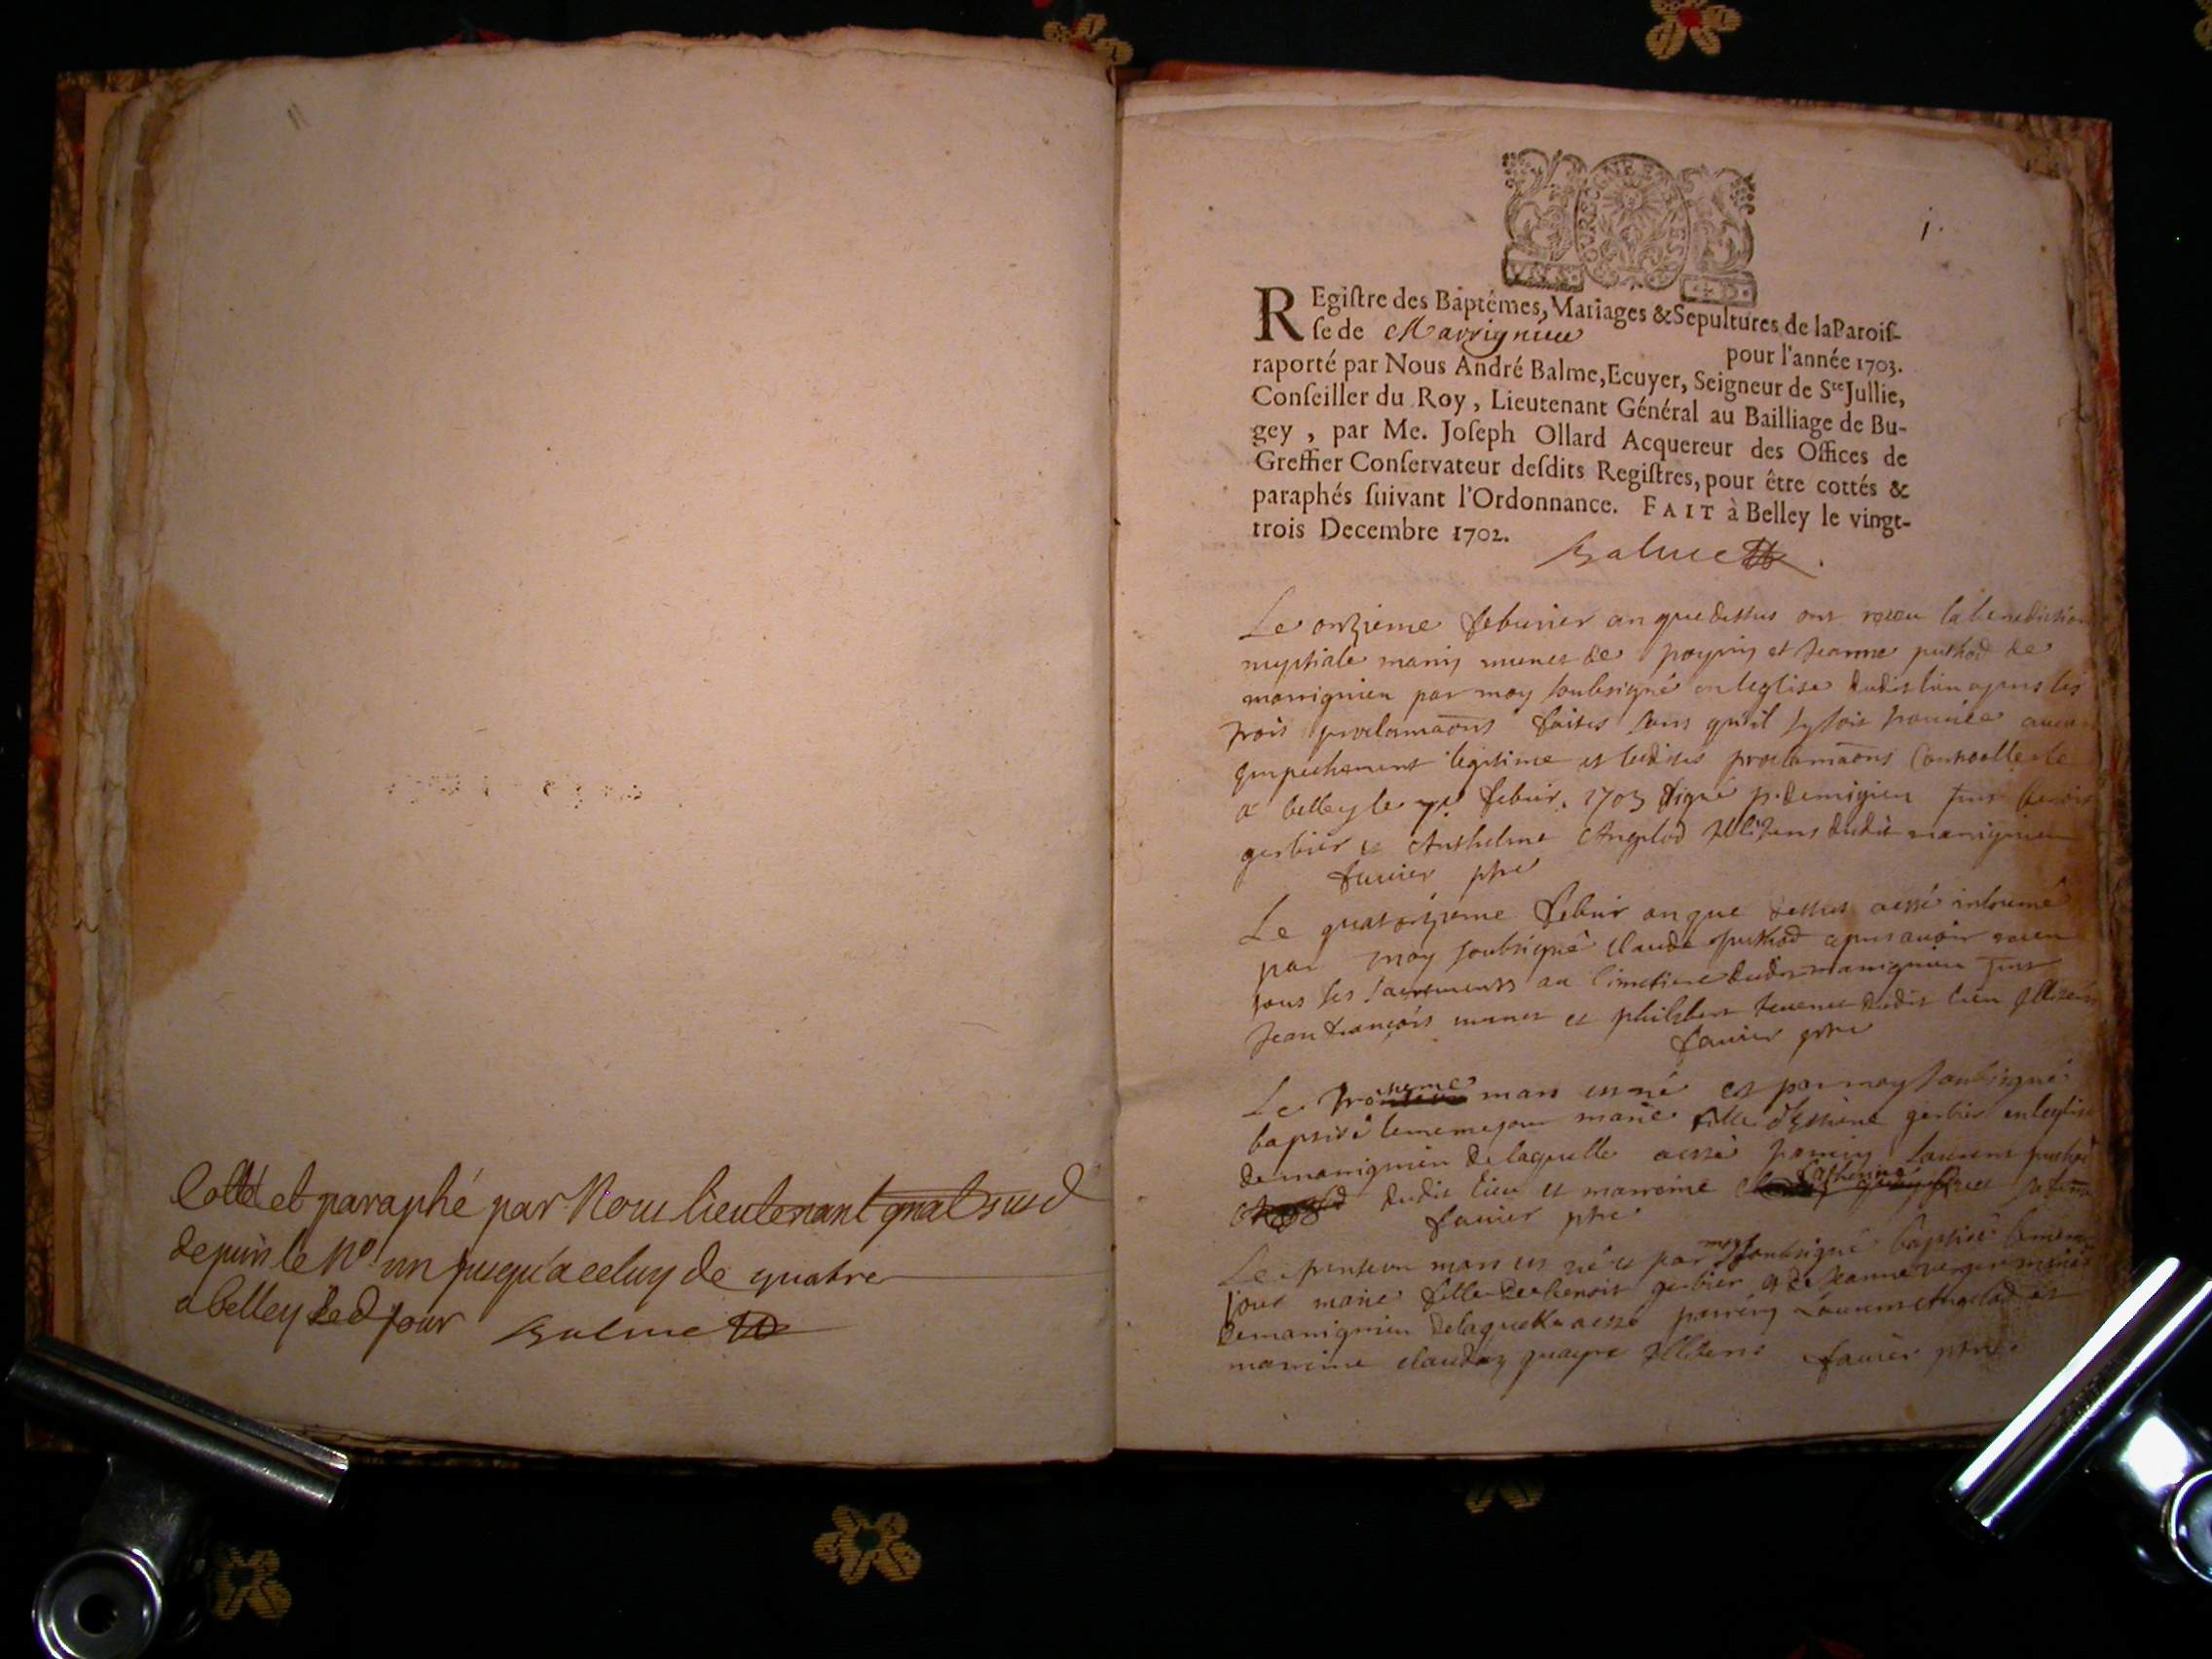 Cotté et paraphé par Nous lieutenant gnal susd
depuis le No. un jusqu'a celuy de quatre
a belley led jour Balme
1.
REgiſtre des Baptêmes, Mariages & Sepultures de la Paroiſ-
ſe de Marrignieu pour l'année 1703.
raporté par Nous André Balme, Ecuyer, Seigneur de Ste Jullie,
Conſeiller du Roy, Lieutenant Général au Bailliage de Bu-
gey, par Me. Joſeph Ollard Acquereur des Offices de
Greffier Conſervateur deſdits Regiſtres, pour être cottés &
paraphés ſuivant l'Ordonnance. FAIT à Belley le vingt-
trois Decembre 1702.
Balme
Le onzieme febvrier an que dessus ont receu la benediction
nuptiale et Jeanne puthod de
marrignieu par moy soubsigné en leglise dudit lieu apres les
trois proclamaons faites sans qu'il sy soit trouvée aucun
empechement legitime et lesdites proclamaons
a belley le febvr. 1703 signé
gerbier et Anthelme Angelod Illiterés dudit marrignieu
favier ptre
Le quatorzieme febvr an que dessus a esté inhumé
par moy soubsigné claude puthod apres avoir receu
tous les sacrements au cimetiere dudit marrignieu
Jean françois et philibert dudit lieu Illiterés
favier ptre
Le troisieme mars est né et par moy soubsigné
baptisé le meme jour marie fille d'Estiene gerbier en leglise
de marrignieu de laquelle a esté parrin Laurens puthod
dudit lieu et marreine Catherine
favier ptre
Le mars est né et par moy soubsigné baptisé le meme
jour marie fille de benoit gerbier et de Jeanne
de marrignieu de laquelle a esté parrein Laurens Angelod et
marreine claudaz Illiterés favier ptre